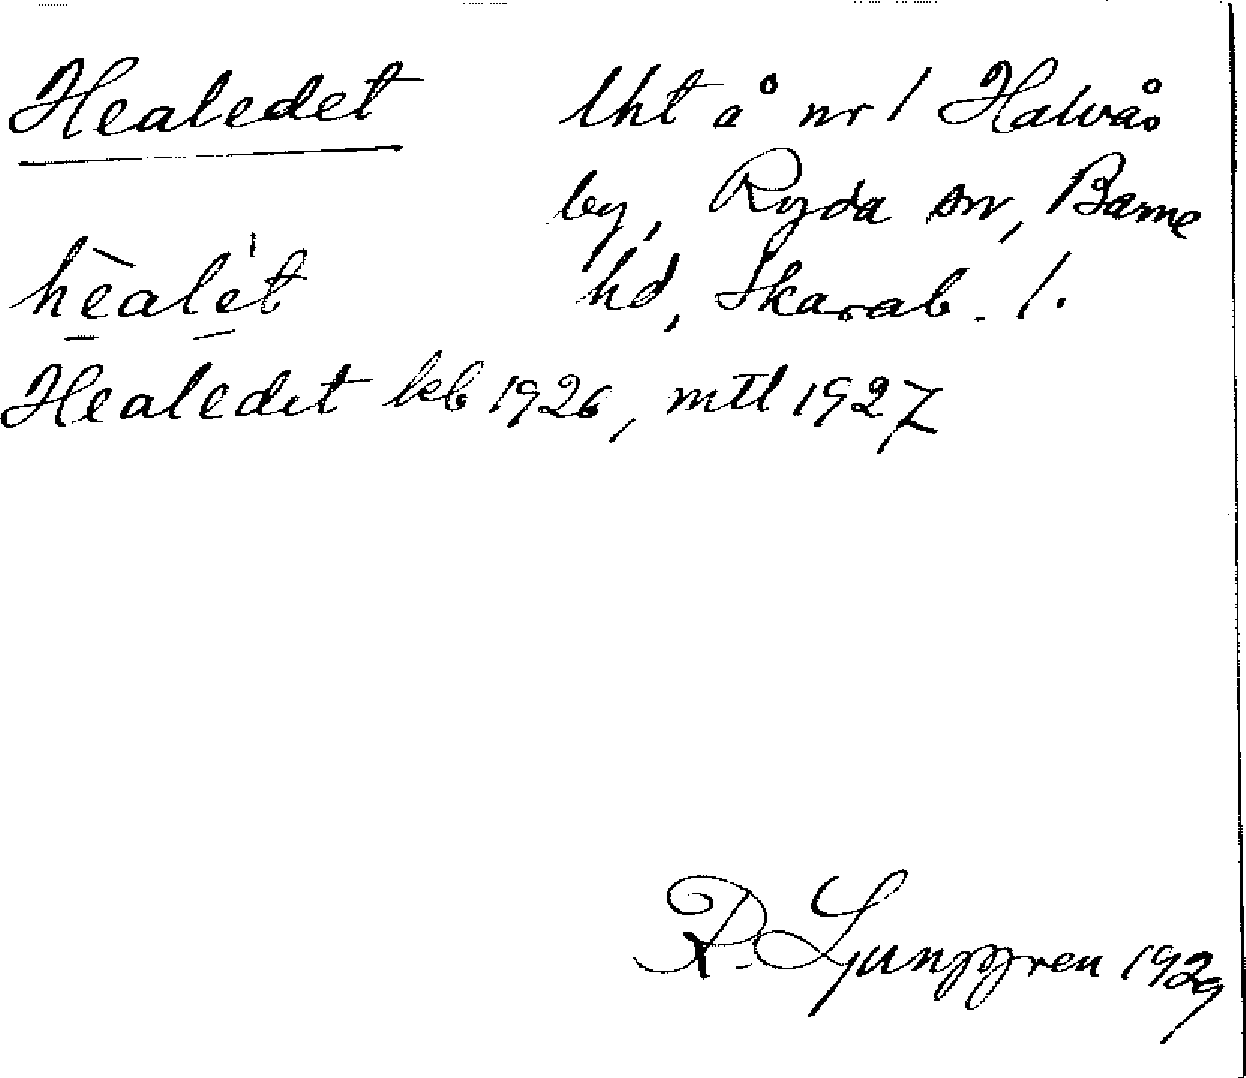 Healedet
lht å nr 1 Halvås
by, Ryda sn, Barne
hd, Skarab. l.
hèalét
Healedet kb 1926, mtl 1927
R. Ljunggren 1929